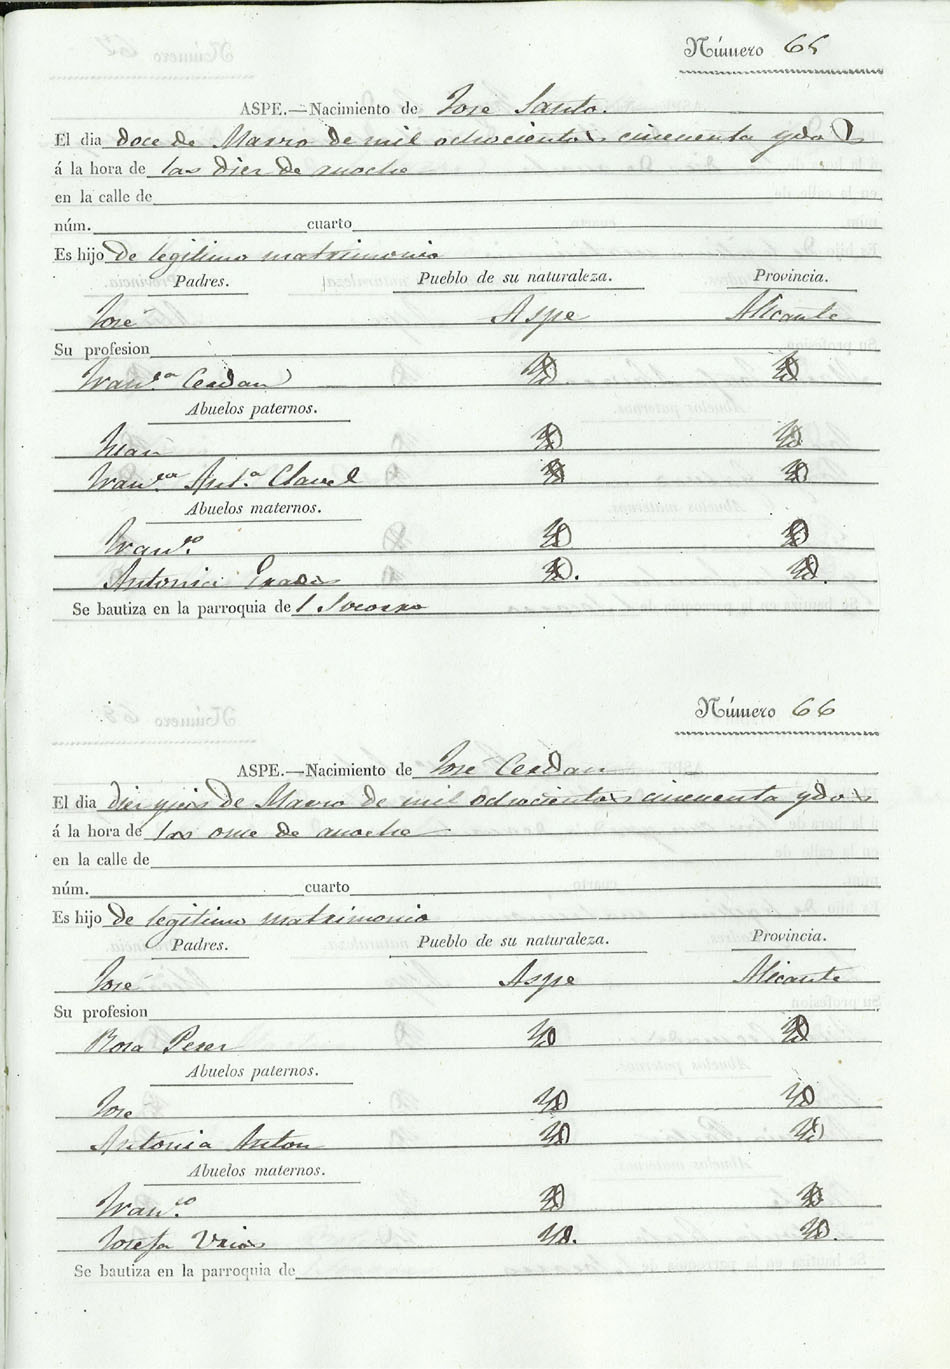 Número 65
ASPE.—Nacimiento de José Santo.
El dia doce de Marzo de mil ochocientos cincuenta y dos
á la hora de las diez de noche
en la calle de
núm. cuarto
Es hijo de legitimo matrimonio
Padres. Pueblo de su naturaleza. Provincia.
José Aspe Alicante
Su profesion
Fran.ca Cerdan
Abuelos paternos.
Juan
Fran.ca Ant.a Clavel
Abuelos maternos.
Fran.co
Antonia
Se bautiza en la parroquia de l Socorro
Número 66
ASPE.—Nacimiento de José Cerdan
El dia diez y seis de Marzo de mil ochocientos cincuenta y dos
á la hora de las once de noche
en la calle de
núm. cuarto
Es hijo de legitimo matrimonio
Padres. Pueblo de su naturaleza. Provincia.
José Aspe Alicante
Su profesion
Rosa Perez
Abuelos paternos.
José
Antonia Anton
Abuelos maternos.
Fran.co
Josefa
Se bautiza en la parroquia de